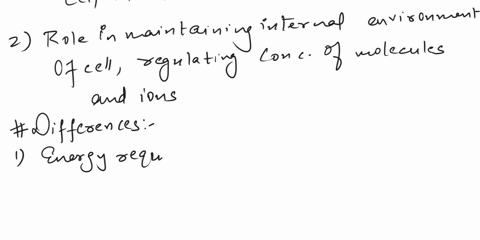 2) Role in maintaining internal environment
Of cell, regulating Conc. of molecules
and ions
# Differences:-
1) Energy requ